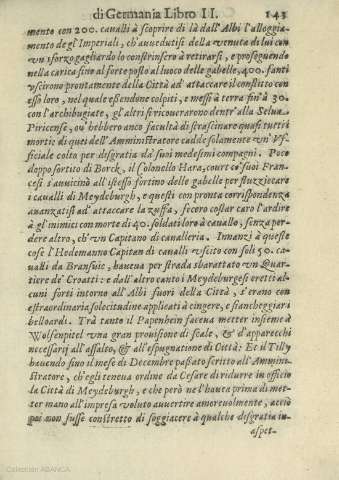 di Germania Libro II. 143
mento con 200. caualli à scoprire di là dall' Albi l'alloggia-
mento de gl'Imperiali, ch'auuedutisi della venuta di lui con
vn sforzo gagliardo lo constrinsero à retirarsi, e proseguendo
nella carica sino al forte posto al luoco delle gabelle, 400. fanti
vscirono prontamente della Città ad attaccare il conflitto con
esso loro, nel quale essendone colpiti, e messi à terra fin'à 30.
con l'archibugiate, gl'altri si ricouerarono dentr'alla Selua
Piricense, ou'hebbero anco facultà di strascinare quasi tutti i
mortiː di quei dell'Amministratore cadde solamente vn'Vf-
ficiale colto per disgratia da' suoi medesimi compagni. Poco
doppo sortito di Borck, il Colonello Hara, court co' suoi Fran-
cesi s'auuicinò all'istesso fortino delle gabelle per stuzzicare
i caualli di Meydeburgh, e questi con pronta corrispondenza
auanzatisi ad attaccare la zuffa, fecero costar caro l'ardire
à gl'inimici con morte di 40. soldati loro à cauallo, senza per-
dere altro, ch'vn Capitano di caualleria. Innanzi à queste
cose l'Hedemanno Capitan di caualli vscito con soli 50. ca-
ualli da Bransuic, haueua per strada sbarattato vn Quar-
tiere de' Croatti: e dall'altro canto i Meydeburgesi eretti al-
cuni forti intorno all'Albi fuori della Città, s'erano con
estraordinaria solecitudine applicati à cingere, e fiancheggiar i
belloardi. Trà tanto il Papenheim faceua metter insieme à
Wolfenpitel vna gran prouisione di scale, & d'apparecchi
necessarij all'assalto, & all'espugnatione di Città: Et il Tilly
hauendo sino il mese di Decembre passato scritto all'Ammini-
stratore, ch'egli teneua ordine da Cesare di ridurre in officio
la Città di Meydburgh, e che però ne l'haueua prima di met-
ter mano all'impresa voluto auuertire amoreuolmente, acciò
poi non fusse constretto di soggiacere à qualche disgratia in-
aspet-
Colección ABANCA